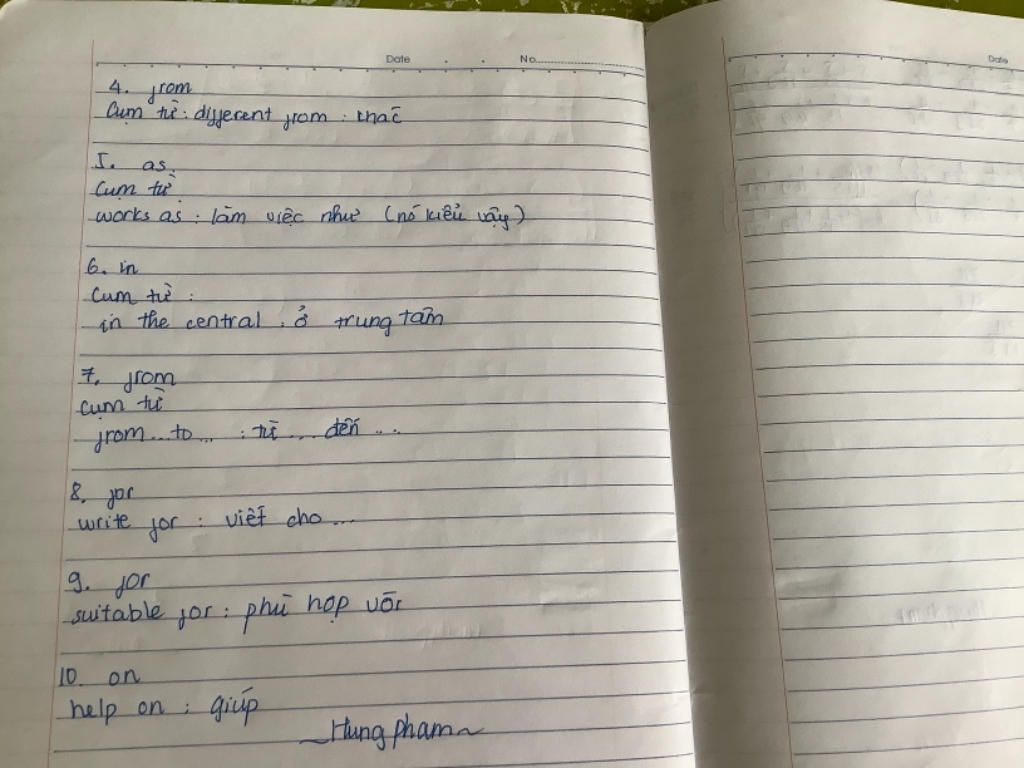 Date . . No.
4. from
Cụm từ : different from : khác
5. as
Cụm từ
works as : làm việc như (nó kiểu vậy)
6. in
Cụm từ :
in the central : ở trung tâm
7. from
cụm từ
from...to... : từ ... đến ...
8. for
write for : viết cho ...
9. for
suitable for : phù hợp với
10. on
help on : giúp
~Hung pham~
Date